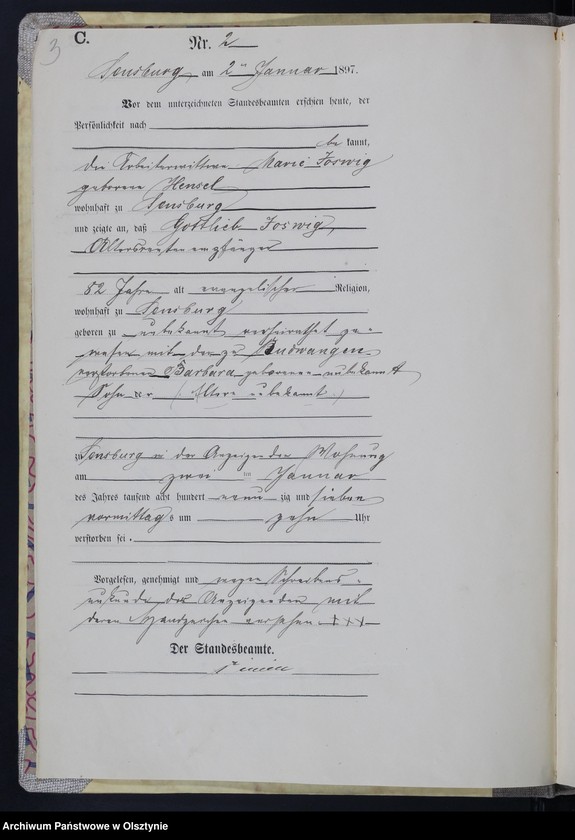 3
C.
Nr. 2
Sensburg, am 2ten Januar 1897.
Vor dem unterzeichneten Standesbeamten erschien heute, der
Persönlichkeit nach
bekannt,
die Arbeiterwittwe Marie Joswig
geborene Hensel
wohnhaft zu Sensburg
und zeigte an, daß Gottlieb Joswig,
Altersrentenempfänger
82 Jahre alt evangelischer Religion,
wohnhaft zu Sensburg
geboren zu unbekannt verheirathet ge-
wesen mit der zu
verstorbenen Barbara geborenen unbekannt
Sohn der (Eltern unbekannt)
zu Sensburg in der Anzeigenden Wohnung
am zwei ten Januar
des Jahres tausend acht hundert neun zig und sieben
vormittags um zehn Uhr
verstorben sei.
Vorgelesen, genehmigt und wegen Schreibens-
unkunde der Anzeigenden mit
deren Handzeichen versehen +++
Der Standesbeamte.
Archiwum Państwowe w Olsztynie